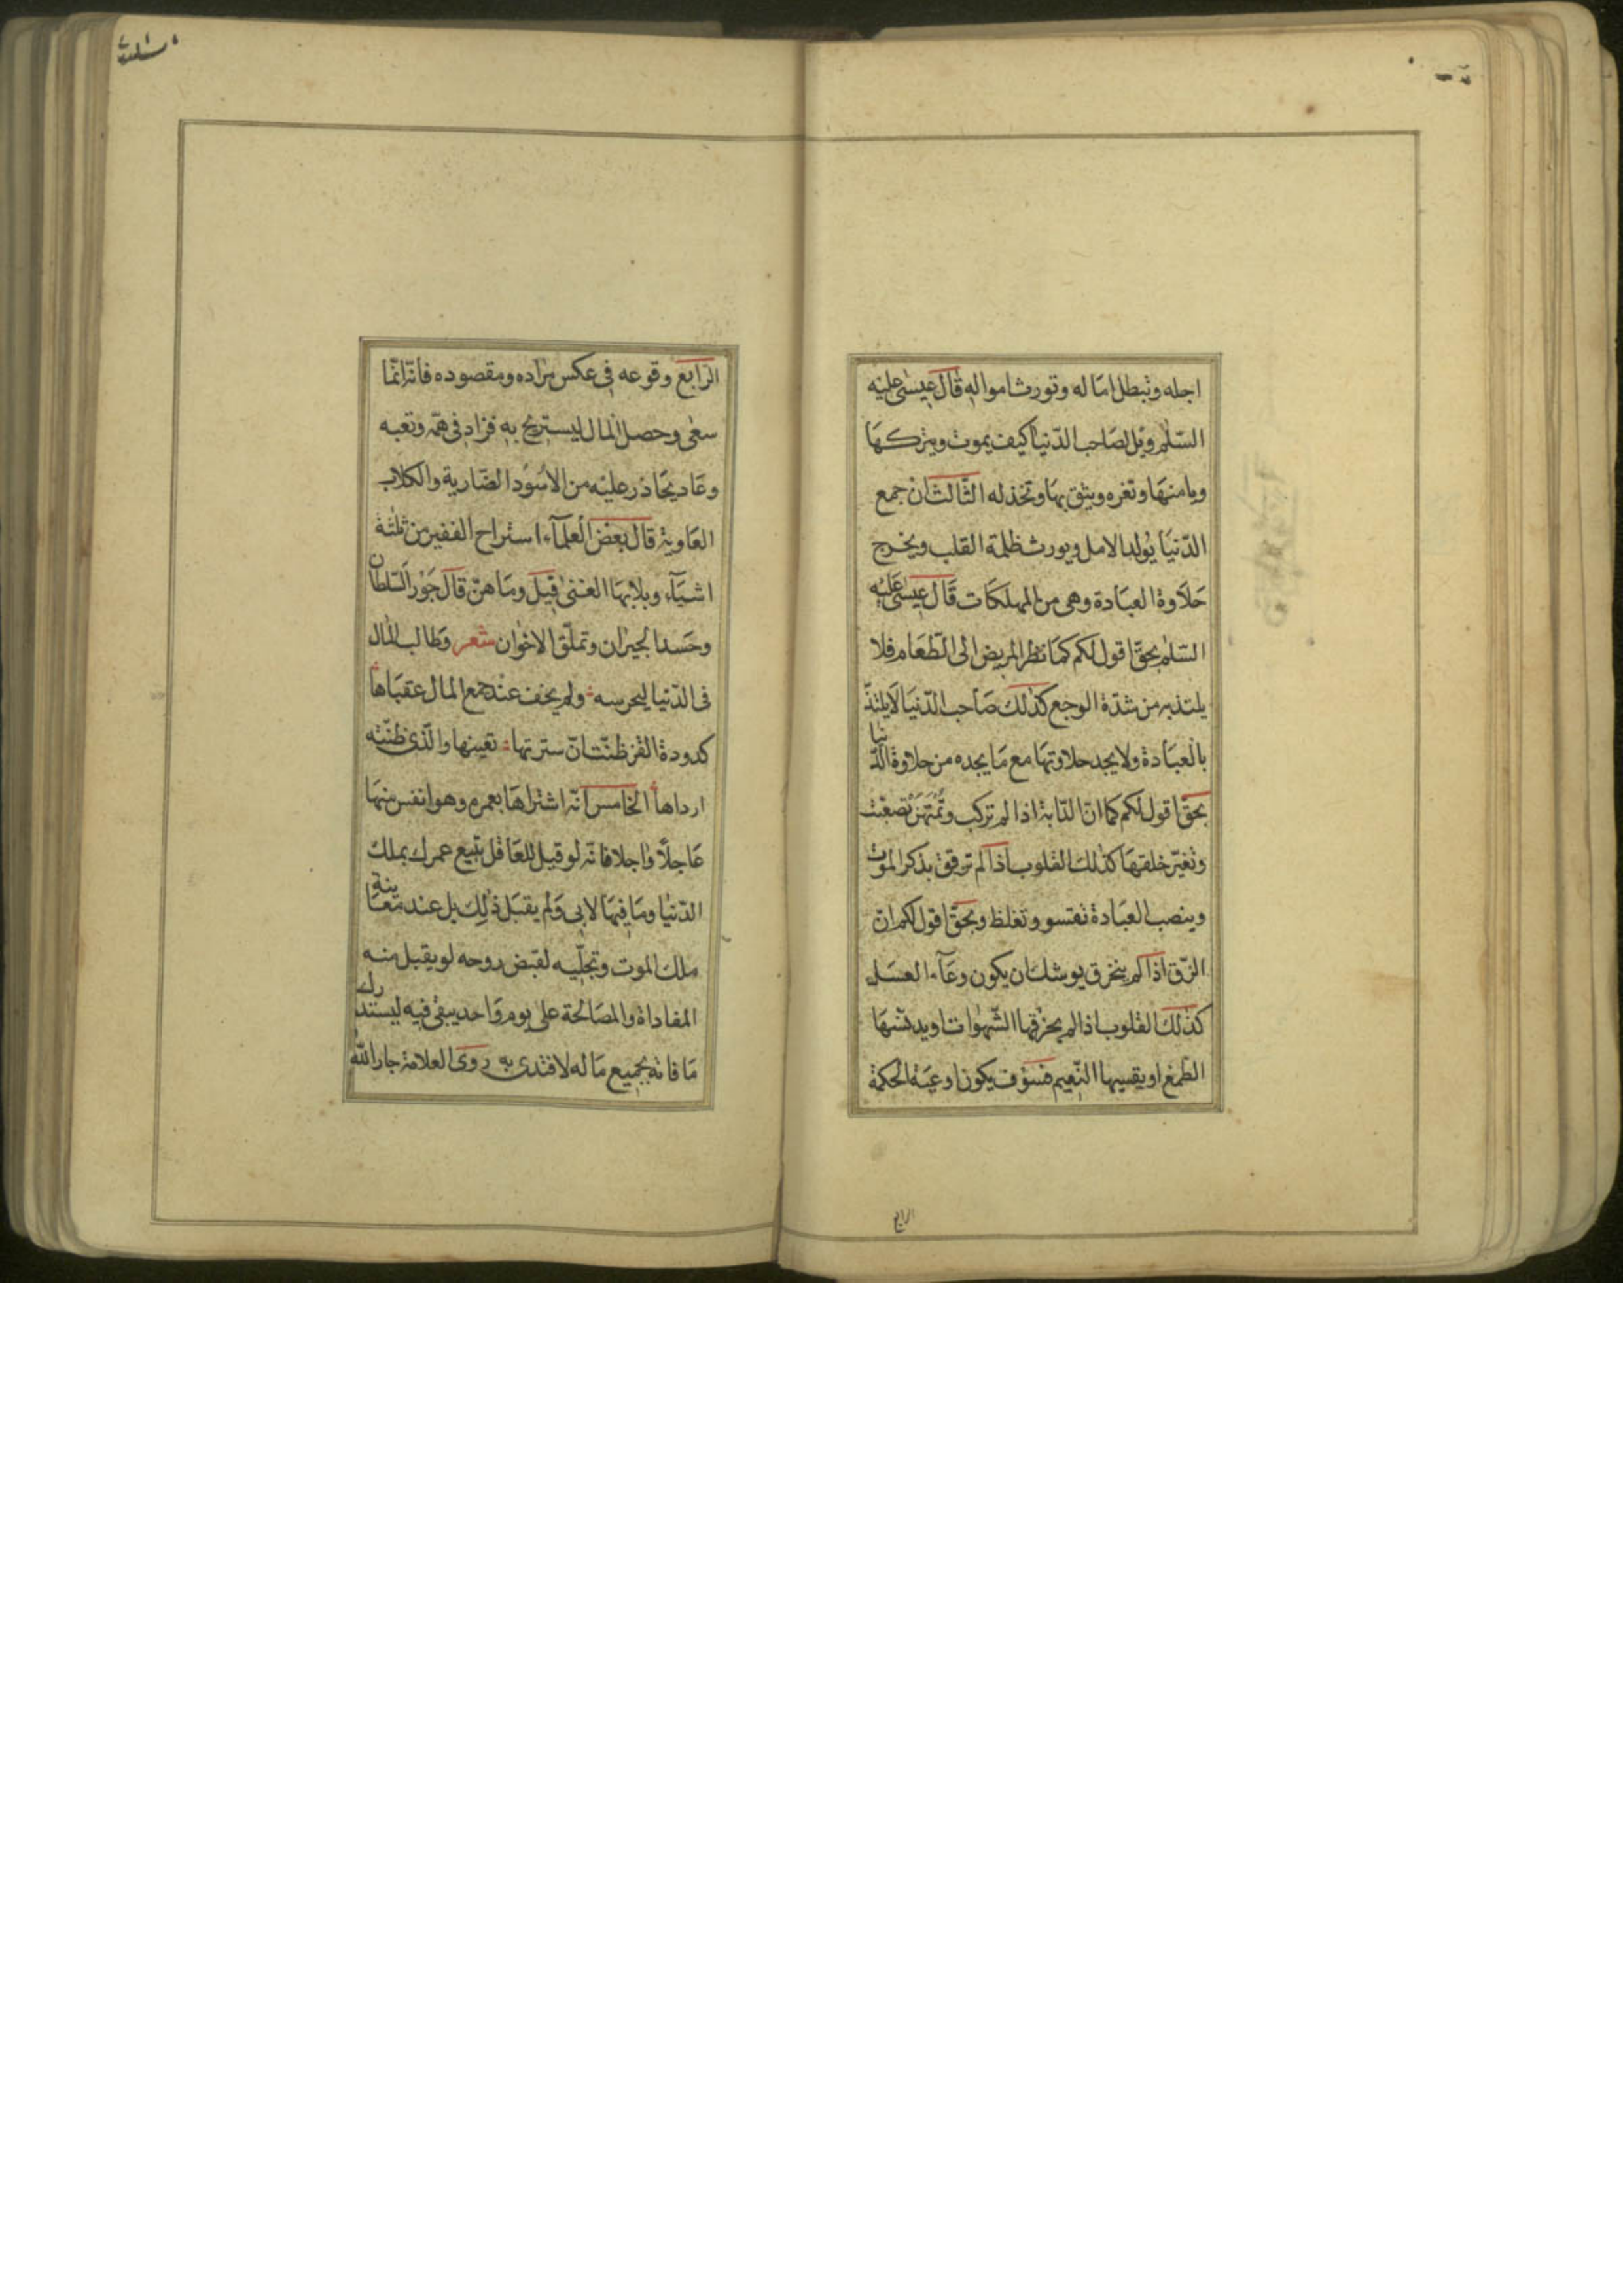 اجله وتبطل اماله وتورث امواله قال عيسى عليه
السّلم ويل لصاحب الدّنيا كيف يموت ويتركها
ويامنها وتغره ويثق بها وتخذله الثّالث ان جمع
الدّنيا يولد الامل ويورث ظلمة القلب ويخرج
حلاوة العبادة وهى من المهلكات قال عيسى عليه
السّلم بحقّ اقول لكم كما نظر المريض الى الطّعام فلا
يلتذ به من شدّة الوجع كذلك صاحب الدّنيا لا يلتذّ
بالعبادة ولا يجد حلاوتها مع ما يجده من حلاوة الدّنيا
بحقّ اقول لكم كما انّ الدّابة اذا لم تركب وتمتهن تصعبت
وتغيّر خلقها كذلك القلوب اذا لم ترقق بذكر الموت
وينصب العبادة تقسو وتغلظ وبحقّ اقول لكم ان
الزّق اذا لم ينخرق يوشك ان يكون وعاء العسل
كذلك القلوب اذا لم يخرقها الشّهوات او يدنّسها
الطّمع او يقسيها النّعيم فسوف يكون اوعية الحكمة
الرابع
الرّابع وقوعه فى عكس مراده ومقصوده فانّه انّما
سعى وحصل المال ليستريح به فزاد فى همّه وتعبه
وعاد يحاذر عليه من الاسود الضّارية والكلاب
العاوية قال بعض العلماء استراح الفقير من ثلثة
اشياء وبلى بها الغنى قيل وما هنّ قال جور السّلطان
وحسد الجيران وتملّق الاخوان شعر وطالب المال
فى الدّنيا ليحرسه ولم يخف عند جمع المال عقباها
كدودة القز ظنّت انّ سترتها تعينها والّذى ظنّته
ارداها الخامس انّه اشتراها بعمره وهو انفس منها
عاجلًا واجلا فانّه لو قيل للعاقل تبيع عمرك بملك
الدّنيا وما فيها لابى ولم يقبل ذلك بل عند معاينة
ملك الموت وتجلّيه لقبض روحه لو يقبل منه
المفاداة والمصالحة على يوم واحد يبقى فيه ليستدرك
ما فاته بجميع ماله لافتدى به روى العلامة جار الله